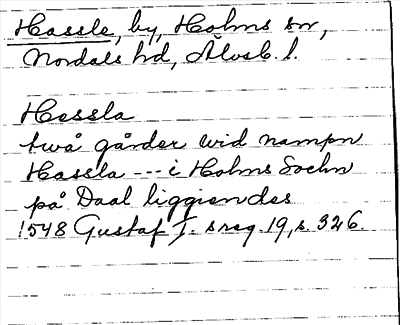 Hassle, by, Holms sn,
Nordals hd, Älvsb. l.
Hessla
twå gårder wid nampn
Hassla --- i Holms Sochn
på Daal liggiendes
1548 Gustaf I. s reg. 19, s. 326.